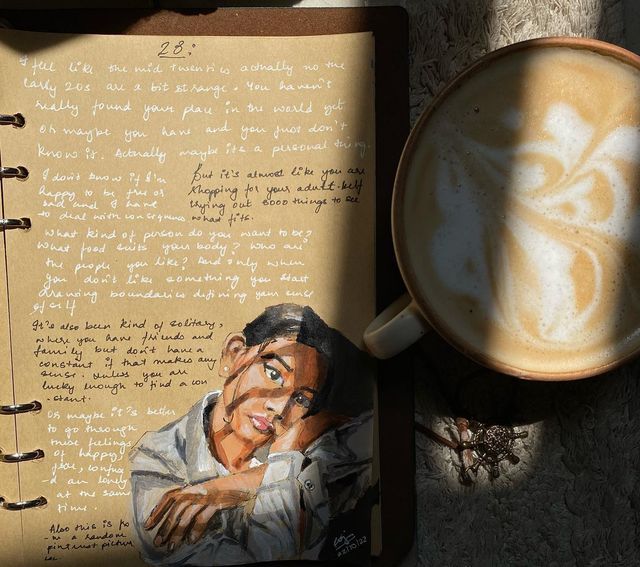 23:
I feel like the mid twenties actually no the
early 20s are a bit strange. You haven't
really found your place in the world yet
Or maybe you have and you just don't
know it. Actually maybe its a personal thing.
I don't know if I'm
happy to be free or
sad and I have
to deal with consequence
But it's almost like you are
shopping for your adult-self
trying out 6000 things to see
what fits.
What kind of person do you want to be?
What food suits your body? Who are
the people you like? And only when
you don't like something you start
drawing boundaries defining your sense
of self
It's also been kind of solitary,
where you have friends and
family but don't have a
constant if that makes any
sense. Unless you are
lucky enough to find a con
-stant.
Or maybe it's better
to go through
these feelings
of happy,
fear, confuse
-d an lonely
at the same
time.
Also this is fo
-m a random
pintrest picture
22/10/22